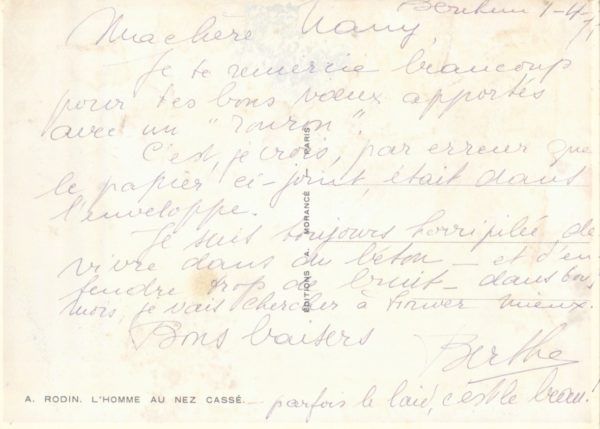 Ma chère Nany,
Je te remercie beaucoup
pour tes bons vœux apportés
avec un "ronron".
C'est, je crois, par erreur que
le papier ci-joint, était dans
l'enveloppe.
Je suis toujours horripilée de
vivre dans du béton - et d'en-
tendre trop de bruit - dans
mois, je vais chercher à trouver mieux.
Bons baisers
Berthe
parfois le laid, c'est le beau!
ÉDITIONS A. MORANCÉ - PARIS
A. RODIN. L'HOMME AU NEZ CASSÉ.